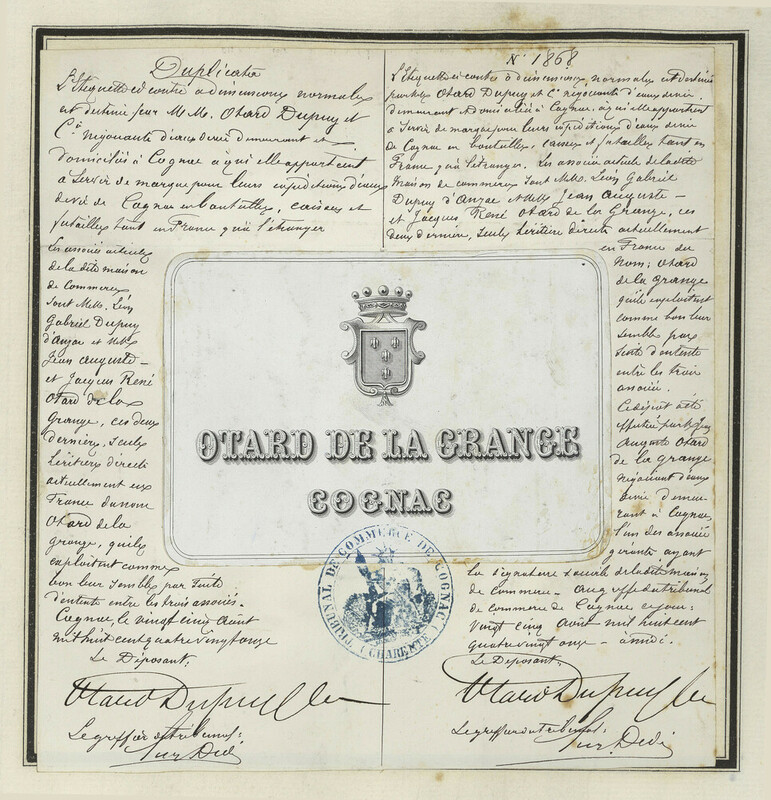 Duplicata
L'étiquette ci contre à dimensions normales
est destinée par M.M. Otard Dupuy et
Cie négociants d'eaux de vie demeurant et
domiciliés à Cognac à qui elle appartient
à servir de marque pour leurs expéditions d'eaux
de vie de Cognac en bouteilles, caisses et
futailles tant en France qu'à l'étranger
Les associés actuels
de la dite maison
de Commerce
sont M.M. Léon
Gabriel Dupuy
d'Anzac et M.M.
Jean Auguste
et Jacques René
Otard de la
Grange, ces deux
derniers, seuls
héritiers directs
actuellement en
France du nom
Otard de la
Grange, qu'ils
exploitent comme
bon leur semble par suite
d'entente entre les trois associés.
Cognac, le vingt cinq Août
mil huit cent quatre vingt onze
Le Déposant:
Otard Dupuy & Cie
Le greffier du tribunal:
N° 1868
L'étiquette ci contre à dimensions normales est destinée
par M.M. Otard Dupuy et Cie négociants d'eaux de vie
demeurant et domiciliés à Cognac, à qui elle appartient
à servir de marque pour leurs expéditions d'eaux de vie
de Cognac en bouteilles, caisses et futailles tant en
France qu'à l'étranger. Les associés actuels de la dite
maison de commerce sont M.M. Léon Gabriel
Dupuy d'Anzac et M.M. Jean Auguste –
et Jacques René Otard de la Grange, ces
deux derniers, seuls héritiers directs actuellement
en France du
nom: Otard
de la Grange
qu'ils exploitent
comme bon leur
semble par
suite d'entente
entre les trois
associés.
Ce dépôt a été
effectué par M. Jean
Auguste Otard
de la Grange
négociant d'eaux
de vie demeu-
rant à Cognac,
l'un des associés
gérants ayant
la signature sociale de la dite maison
de Commerce – au greffe du tribunal
de commerce de Cognac ce jour:
vingt cinq Août mil huit cent
quatre vingt onze – à midi.
Le Déposant:
Otard Dupuy & Cie
Le greffier du tribunal:
OTARD DE LA GRANGE
COGNAC
TRIBUNAL DE COMMERCE DE COGNAC
(CHARENTE)